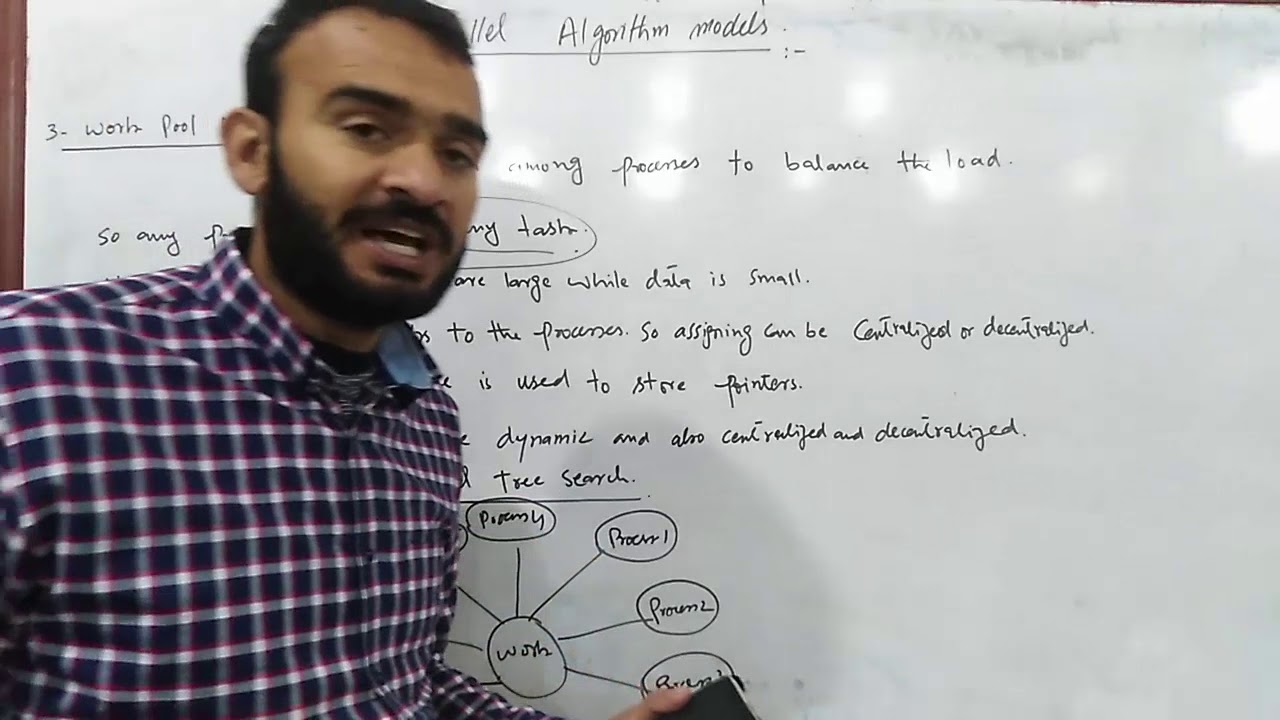 llel Algorithm models :-
3- Work Pool
among processes to balance the load.
So any ny task.
are large while data is small.
to the processes. So assigning can be Centralized or decentralized.
is used to store pointers.
dynamic and also centralized and decentralized.
tree search.
Process4
Process1
Process2
work